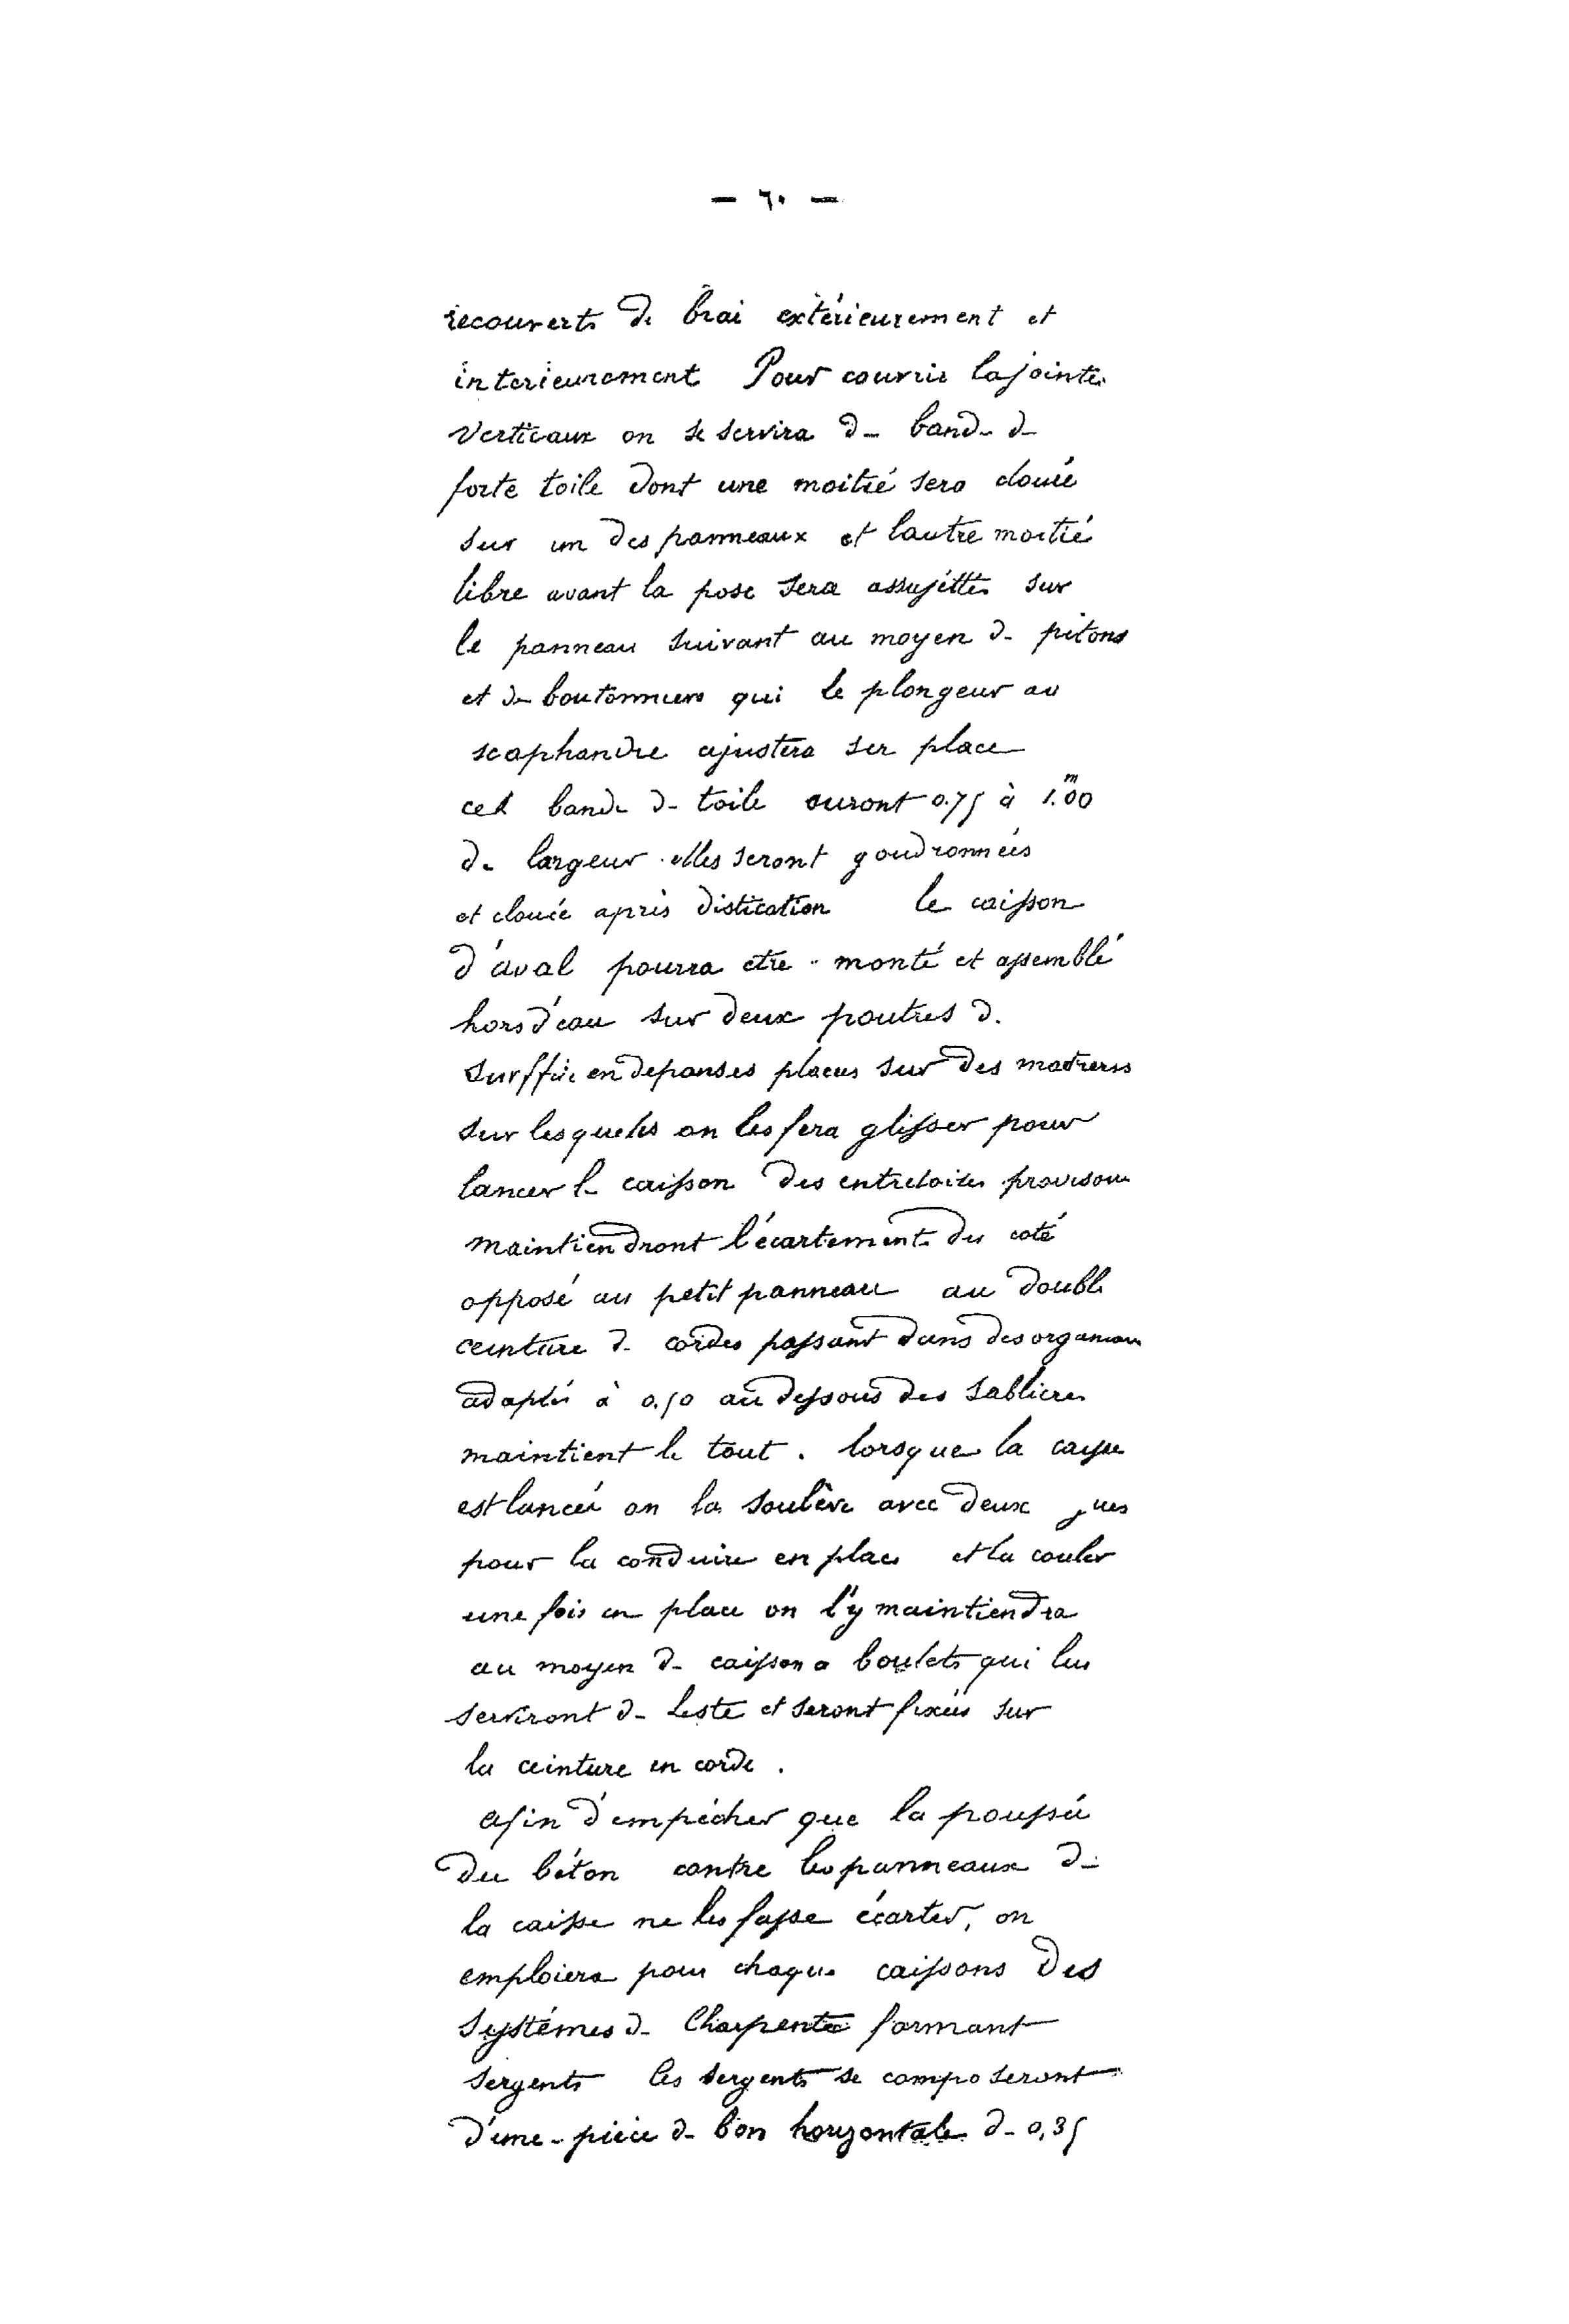 — ٦٠ —
recouverts de brai extérieurement et
interieurement Pour couvrir les joints
verticaux on se servira de bande de
forte toile dont une moitié sera clouée
sur un des panneaux et l'autre moitié
libre avant la pose sera assujettie sur
le panneau suivant au moyen de pitons
et de boutonnieres qui le plongeur au
scaphandre ajustera sur place
ces bande de toile auront 0.75 à 1.m00
de largeur elles seront goudronnées
et clouée après le caisson
d'aval pourra etre monté et assemblé
hors d'eau sur deux poutres de
en placées sur des madriers
sur lesqueles on les fera glisser pour
lancer le caisson des entretoises provisoires
maintiendront l'écartement du coté
opposé au petit panneau au double
ceinture de cordes passant dans des organeaux
adaptés à 0.50 au dessous des sablieres
maintient le tout . lorsque la caisse
est lancée on la soulève avec deux grues
pour la conduire en place et la couler
une fois en place on l'y maintiendra
au moyen de caisson a boulets qui leur
serviront de leste et seront fixés sur
la ceinture en corde .
afin d'empécher que la poussée
du béton contre les panneaux de
la caisse ne les fasse écarter, on
emploiera pour chaque caissons des
systémes de Charpente formant
sergents les sergents se composeront
d'une piéce de bon horizontale de 0,35